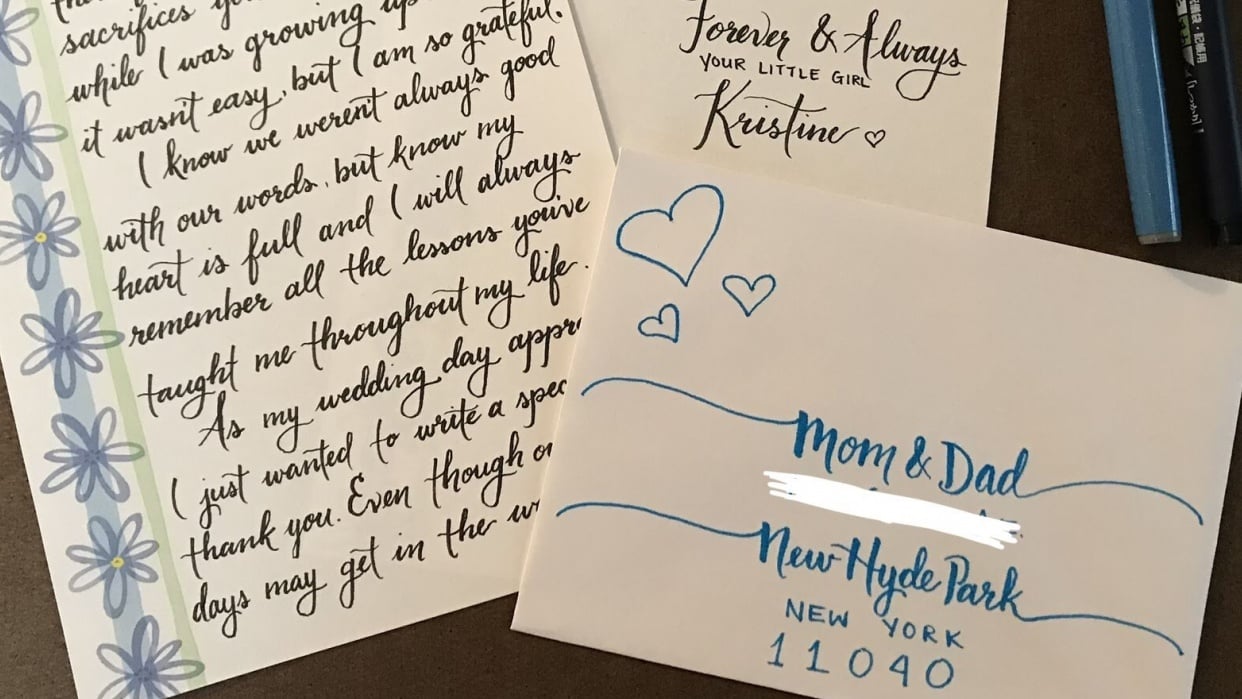 sacrifices
while I was growing up
it wasn't easy, but I am so grateful.
I know we weren't always good
with our words, but know my
heart is full and I will always
remember all the lessons you've
taught me throughout my life.
As my wedding day
I just wanted to write a
thank you. Even though
days may get in the
Forever & Always
YOUR LITTLE GIRL
Kristine
Mom & Dad
New Hyde Park
NEW YORK
11040